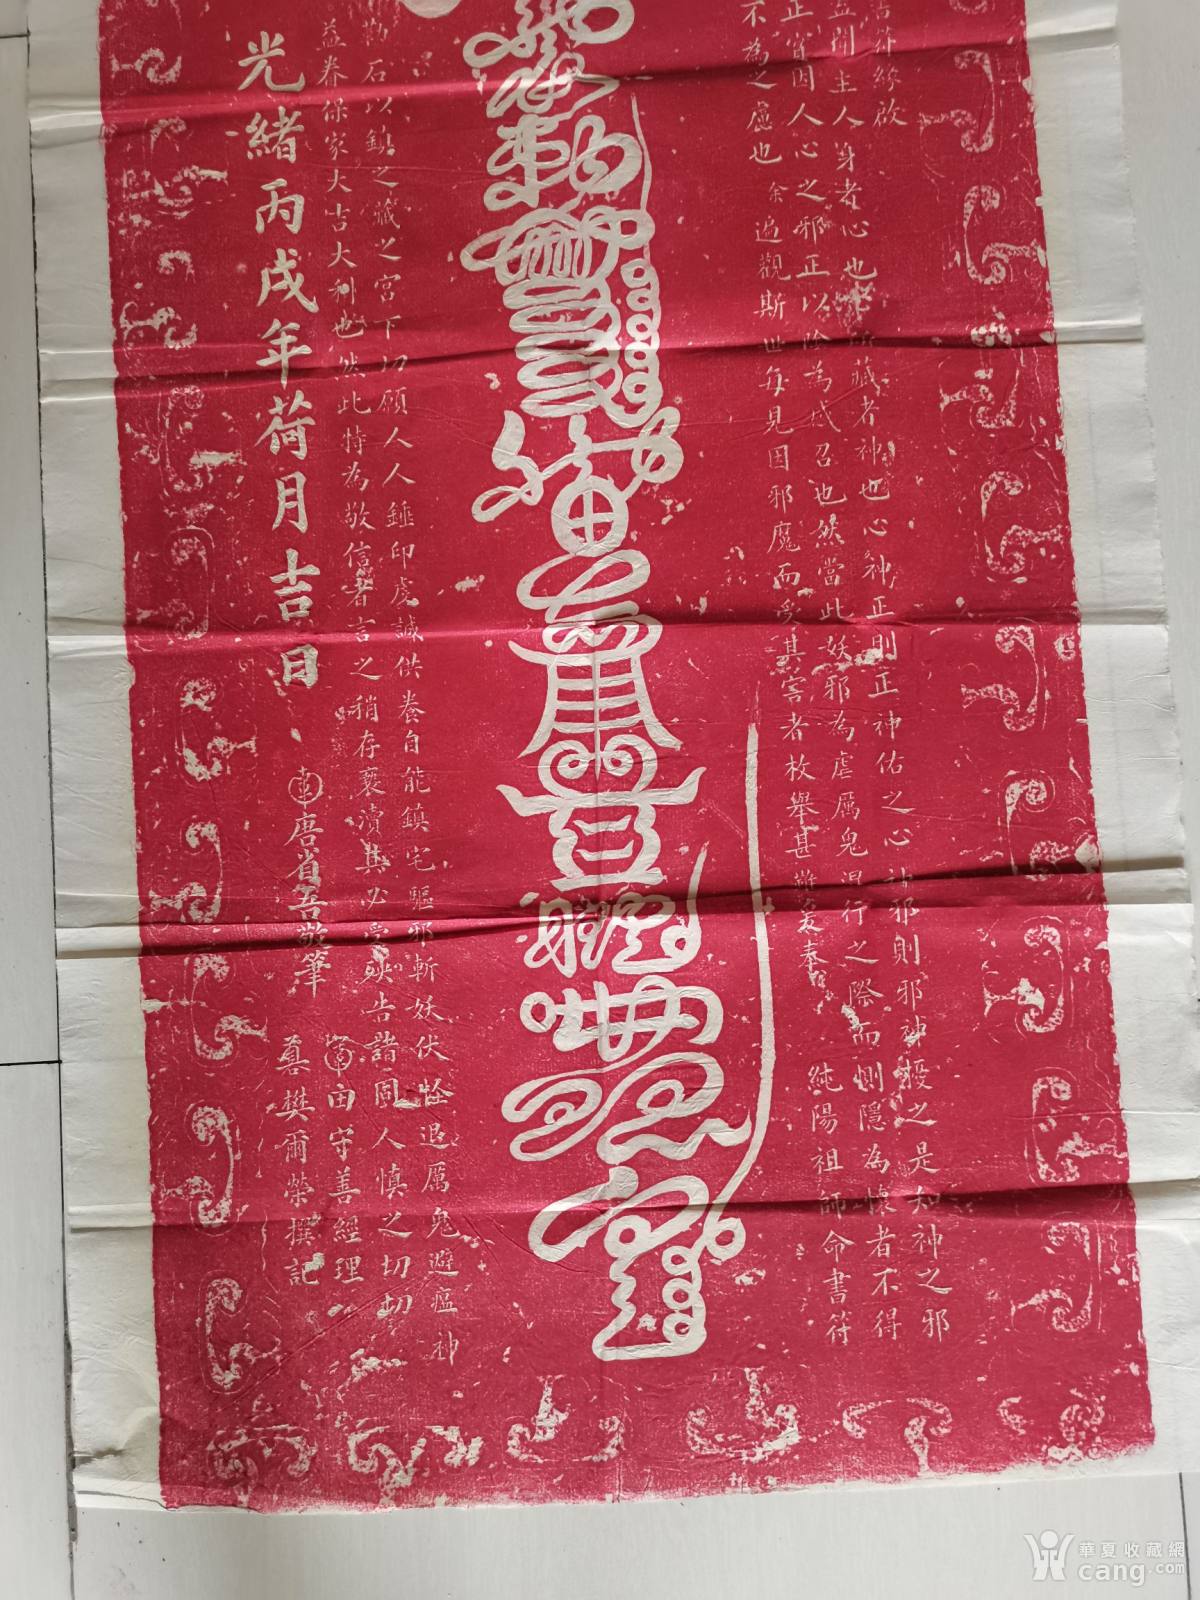 吉符緣啟
主人身者心也 藏者神也心神正則正神佑之心神邪則邪神擾之是知神之邪
正皆因人心之邪正以陰為代召也然當此妖邪為虐厲鬼混行之際而惻隱為懷者不得
不為之慮也余遍觀斯世每見因邪魔而受其害者枚舉甚難爰奉
純陽祖師命書符
勒石以鎮之藏之宮下切願人人錘印虔誠供養自能鎮宅驅邪斬妖伏怪退厲鬼避瘟神
益眷保家大吉大利也然此特為敬信者言之稍存褻瀆其必受殃告諸同人慎之切切
光緒丙戌年荷月吉日
唐省吾敬筆
田守善經理
樊爾榮撰記
華夏收藏網
cang.com